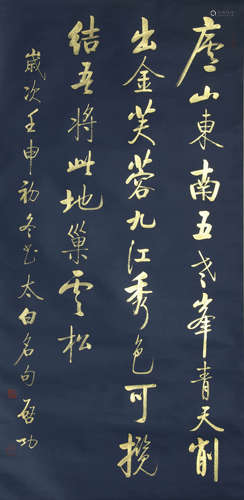 庐山東南五老峯青天削
出金芙蓉九江秀色可攬
结吾將此地巢雲松
歲次壬申初冬書太白名句 啓功